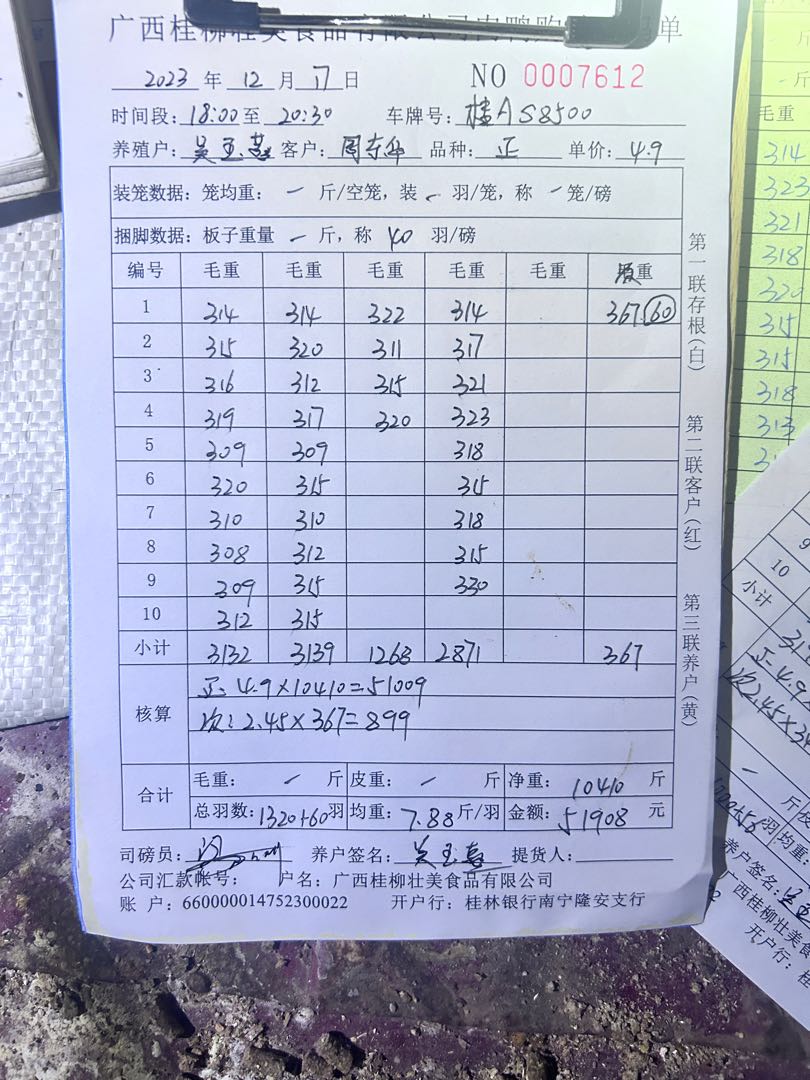 广西桂柳壮美食品有限公司肉鸭购 单
2023 年 12 月 17 日 NO 0007612
时间段: 18:00 至 20:30 车牌号: 桂AS8500
养殖户: 吴玉 客户: 周 品种: 正 单价: 4.9
装笼数据: 笼均重: - 斤/空笼, 装 - 羽/笼, 称 - 笼/磅
捆脚数据: 板子重量 - 斤, 称 40 羽/磅
编号 毛重 毛重 毛重 毛重 毛重 重
1 314 314 322 314 367 60
2 315 320 311 317
3 316 312 315 321
4 319 317 320 323
5 309 309 318
6 320 315 315
7 310 310 318
8 308 312 315
9 309 315 330
10 312 315
小计 3132 3139 1268 2871 367
核算
正: 4.9×10410=51009
次: 2.45×367=899
合计
毛重: - 斤 皮重: - 斤 净重: 10410 斤
总羽数: 1320+60 羽 均重: 7.88 斤/羽 金额: 51908 元
司磅员: 养户签名: 吴玉 提货人:
公司汇款帐号: 户名: 广西桂柳壮美食品有限公司
账 户: 660000014752300022 开户行: 桂林银行南宁隆安支行
第一联存根(白)
第二联客户(红)
第三联养户(黄)
斤
斤
毛重
314
323
321
318
320
315
315
318
313
9
10
小计
正4.9×
次2.45×
斤
羽 均重:
养户签名:
广西桂柳壮美食
开户行: